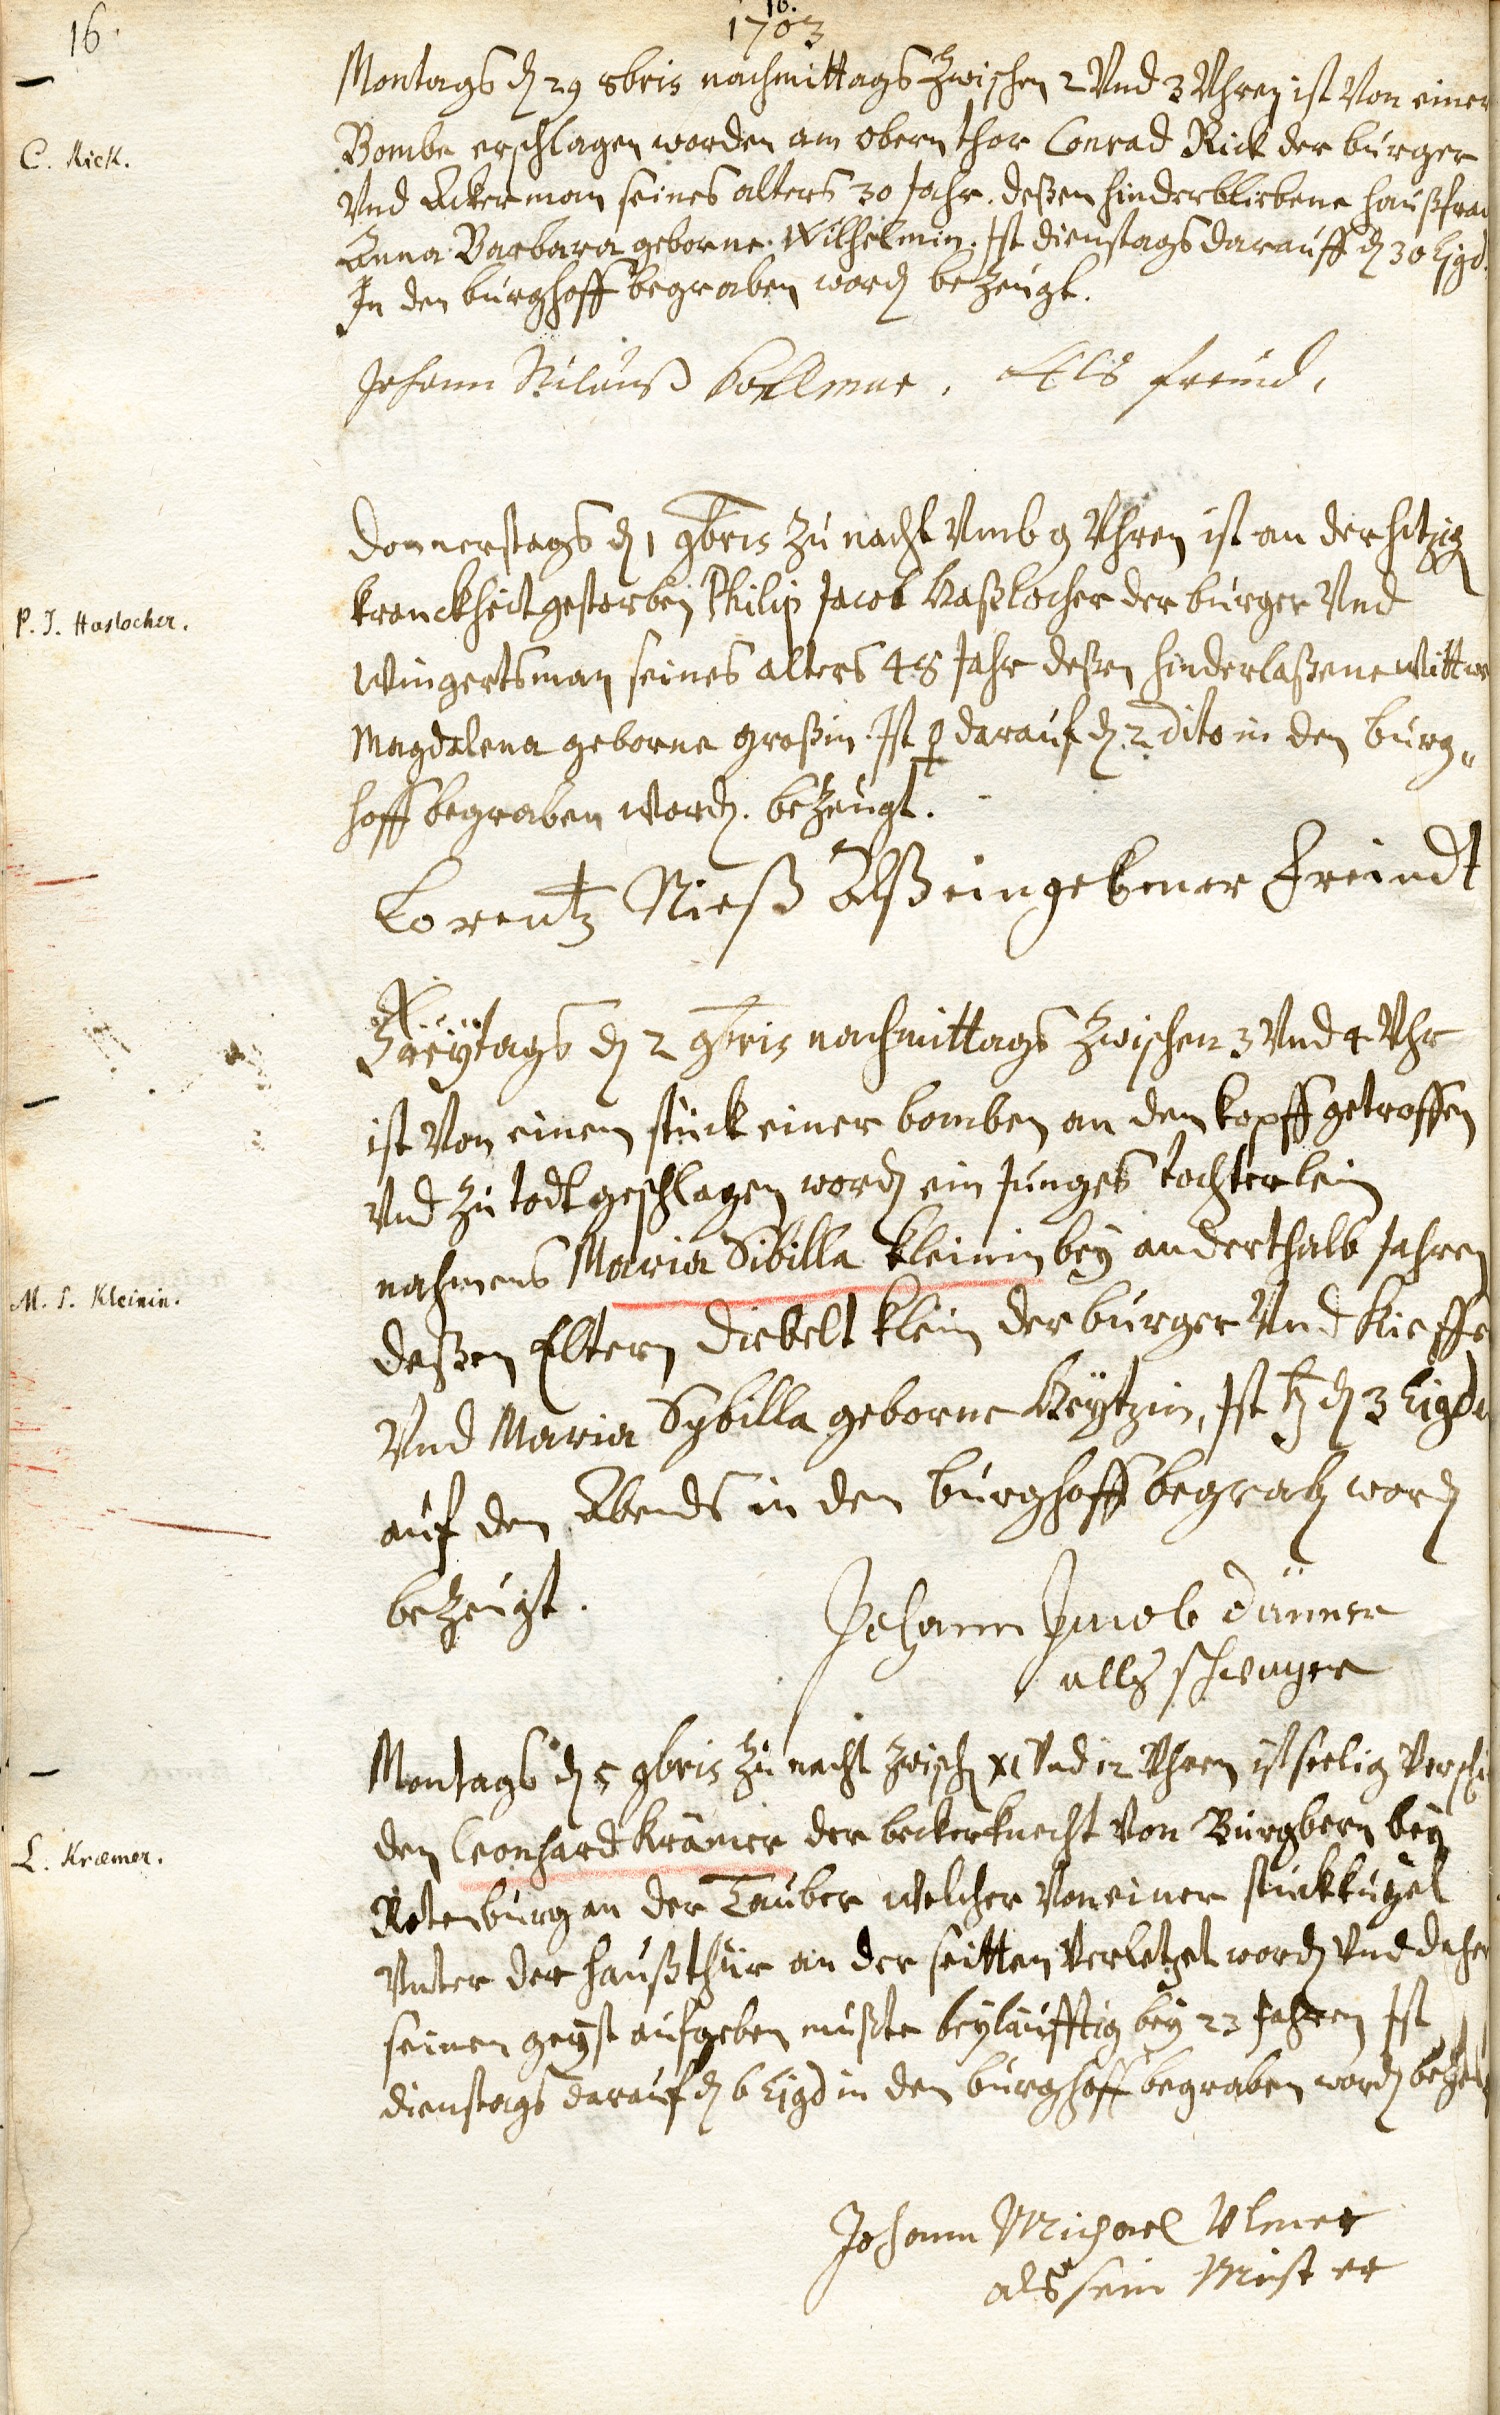 16.
16.
1703
Montags d. 29 8bris nachmittags zwischen 2 Vnd 3 Vhren ist Von einer
C. Rick.
Bombe erschlagen worden am obern thor Conrad Rick der burger
Vnd Ackerman seines alters 30 Jahr. deßen hinderbliebene haußfrau
Anna Barbara geborne Wilhelmin. Ist dienstags darauff d. 30 Ejgd.
In den burghoff begraben word. bezeugt.
Johann Als freund,
Donnerstags d. 1 9bris zu nacht Vmb 9 Vhren ist an der hitzig
P. J. Haslocher.
kranckheit gestorben Philip Jacob Haßlocher der burger Vnd
Wingertsman seines alters 48 Jahr deßen hinderlaßene Wittwe
Magdalena geborne Großin. Ist ♀ darauf d. 2 dito in den burg„
hoff begraben word. bezeugt.
Lorentz Nieß Alß eingebener Freindt
Freÿtags d. 2 9bris nachmittags zwischen 3 Vnd 4 Vhr
ist Von einem stück einer bomben an den kopff getroffen
Vnd zu todt geschlagen word. ein junges töchterlein
nahmens Maria Sibilla Kleinin beÿ anderthalb Jahren
M. S. Kleinin.
deßen Eltern Diebelt Klein der burger Vnd Kieffer
Vnd Maria Sybilla geborne Heÿtzin, Ist ♄ d. 3 Ejgd
auf den Abends in den burghoff begrab. word.
bezeugt.
Johann Jacob Dänner
allß schwager
Montags d. 5 9bris zu nacht zwisch. XI Vnd 12 Vhren ist seelig Verschi
L. Kræmer.
den Leonhard Krämer der beckerknecht Von Burgbern beÿ
Rotenburg an der Tauber welcher Von einer stückkugel
Vnter der haußthür an der seitten Verletzet word. Vnd daher
seinen geÿst aufgeben mußte beÿläufftig beÿ 23 Jahren Ist
dienstags darauf d. 6 Ejgd in den burghoff begraben word.
Johann Michael Vlmer
als sein Meister